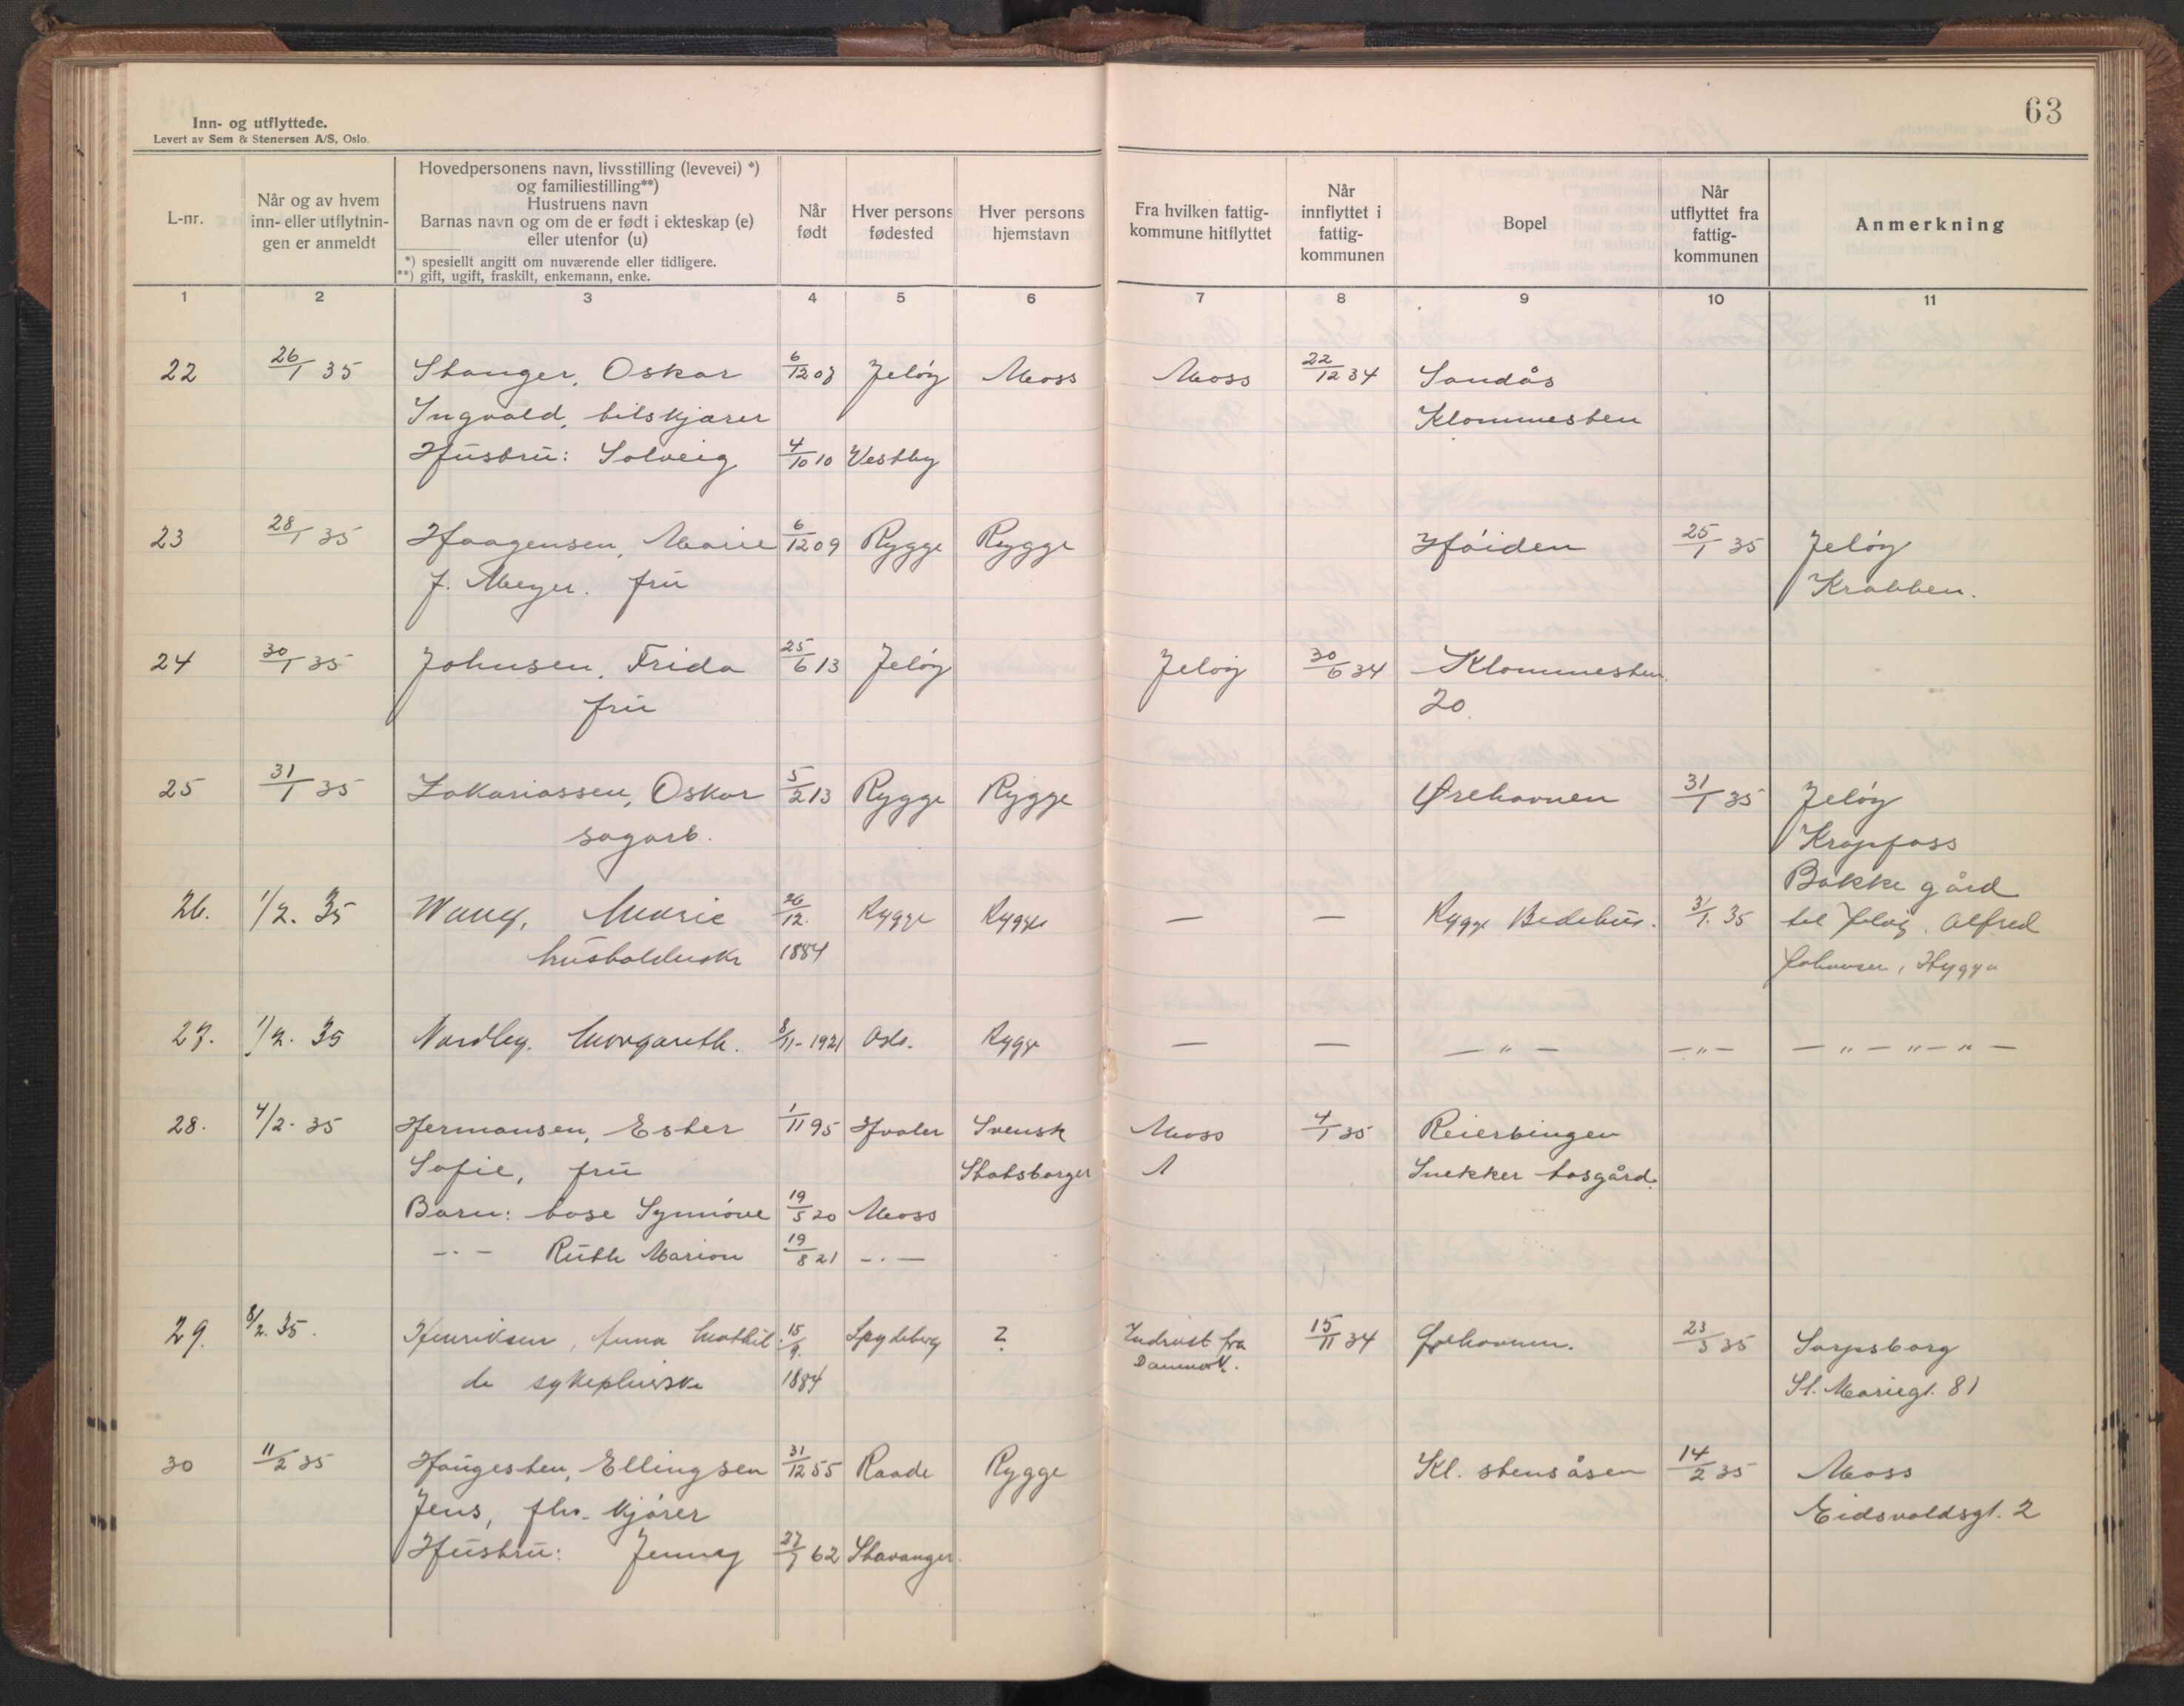 63
Inn- og utflyttede.
Levert av Sem & Stenersen A/S, Oslo.
L-nr.
Når og av hvem
inn- eller utflytnin-
gen er anmeldt
Hovedpersonens navn, livsstilling (levevei) *)
og familiestilling**)
Hustruens navn
Barnas navn og om de er født i ekteskap (e)
eller utenfor (u)
*) spesiellt angitt om nuværende eller tidligere.
**) gift, ugift, fraskilt, enkemann, enke.
Når
født
Hver persons
fødested
Hver persons
hjemstavn
Fra hvilken fattig-
kommune hitflyttet
Når
innflyttet i
fattig-
kommunen
Bopel
Når
utflyttet fra
fattig-
kommunen
Anmerkning
1 2 3 4 5 6 7 8 9 10 11
22 26/1 35 Stanger, Oskar 6/12 07 Jeløy Moss Moss 22/12 34 Sandås
Ingvald, bilskjører Klommesten
Hustru: Solveig 4/10 10 Vestby
23 28/1 35 Haagensen, Marie 6/12 09 Rygge Rygge Høiden 25/1 35 Jeløy
f. Meyer. fru Krabben.
24 30/1 35 Johnsen, Frida 25/6 13 Jeløy Jeløy 30/6 34 Klommesten
fru 20
25 31/1 35 Zakariassen, Oskar 5/2 13 Rygge Rygge Ørehavnen 31/1 35 Jeløy
sagarb. Krapfoss
Bakke gård
26. 1/2. 35 Wang, Marie 26/12. Rygge Rygge — — Rygge Bedehus. 31/1. 35 til Jeløy. Alfred
husholderske 1884 Johansen, Hygga
27. 1/2. 35 Nordby. Margareth. 8/11-1921 Oslo. Rygge — — — " — — " — — " — " — " —
28. 4/2. 35 Hermansen, Ester 1/11 95 Hvaler Svensk Moss 4/1 35 Reierbingen
Sofie, fru Statsborger Snekker tosgård.
Barn: Synnøve 19/5 20 Moss
—·— Ruth Marion 19/8 21 —·—
29. 8/2. 35. Henriksen, Anna Mathil 15/9. Spydeberg ? Indreist fra 15/11 34 Ørehavnen. 23/3 35 Sarpsborg
de sykepleierske 1884 Danmark. St. Mariegt. 81
30 11/2 35 Haugesten, Ellingsen 31/12 55 Raade Rygge Kl. stensåsen 14/2 35 Moss
Jens, fhv. kjører Eidsvoldsgt. 2
Hustru: Jenny 27/7 62 Stavanger.